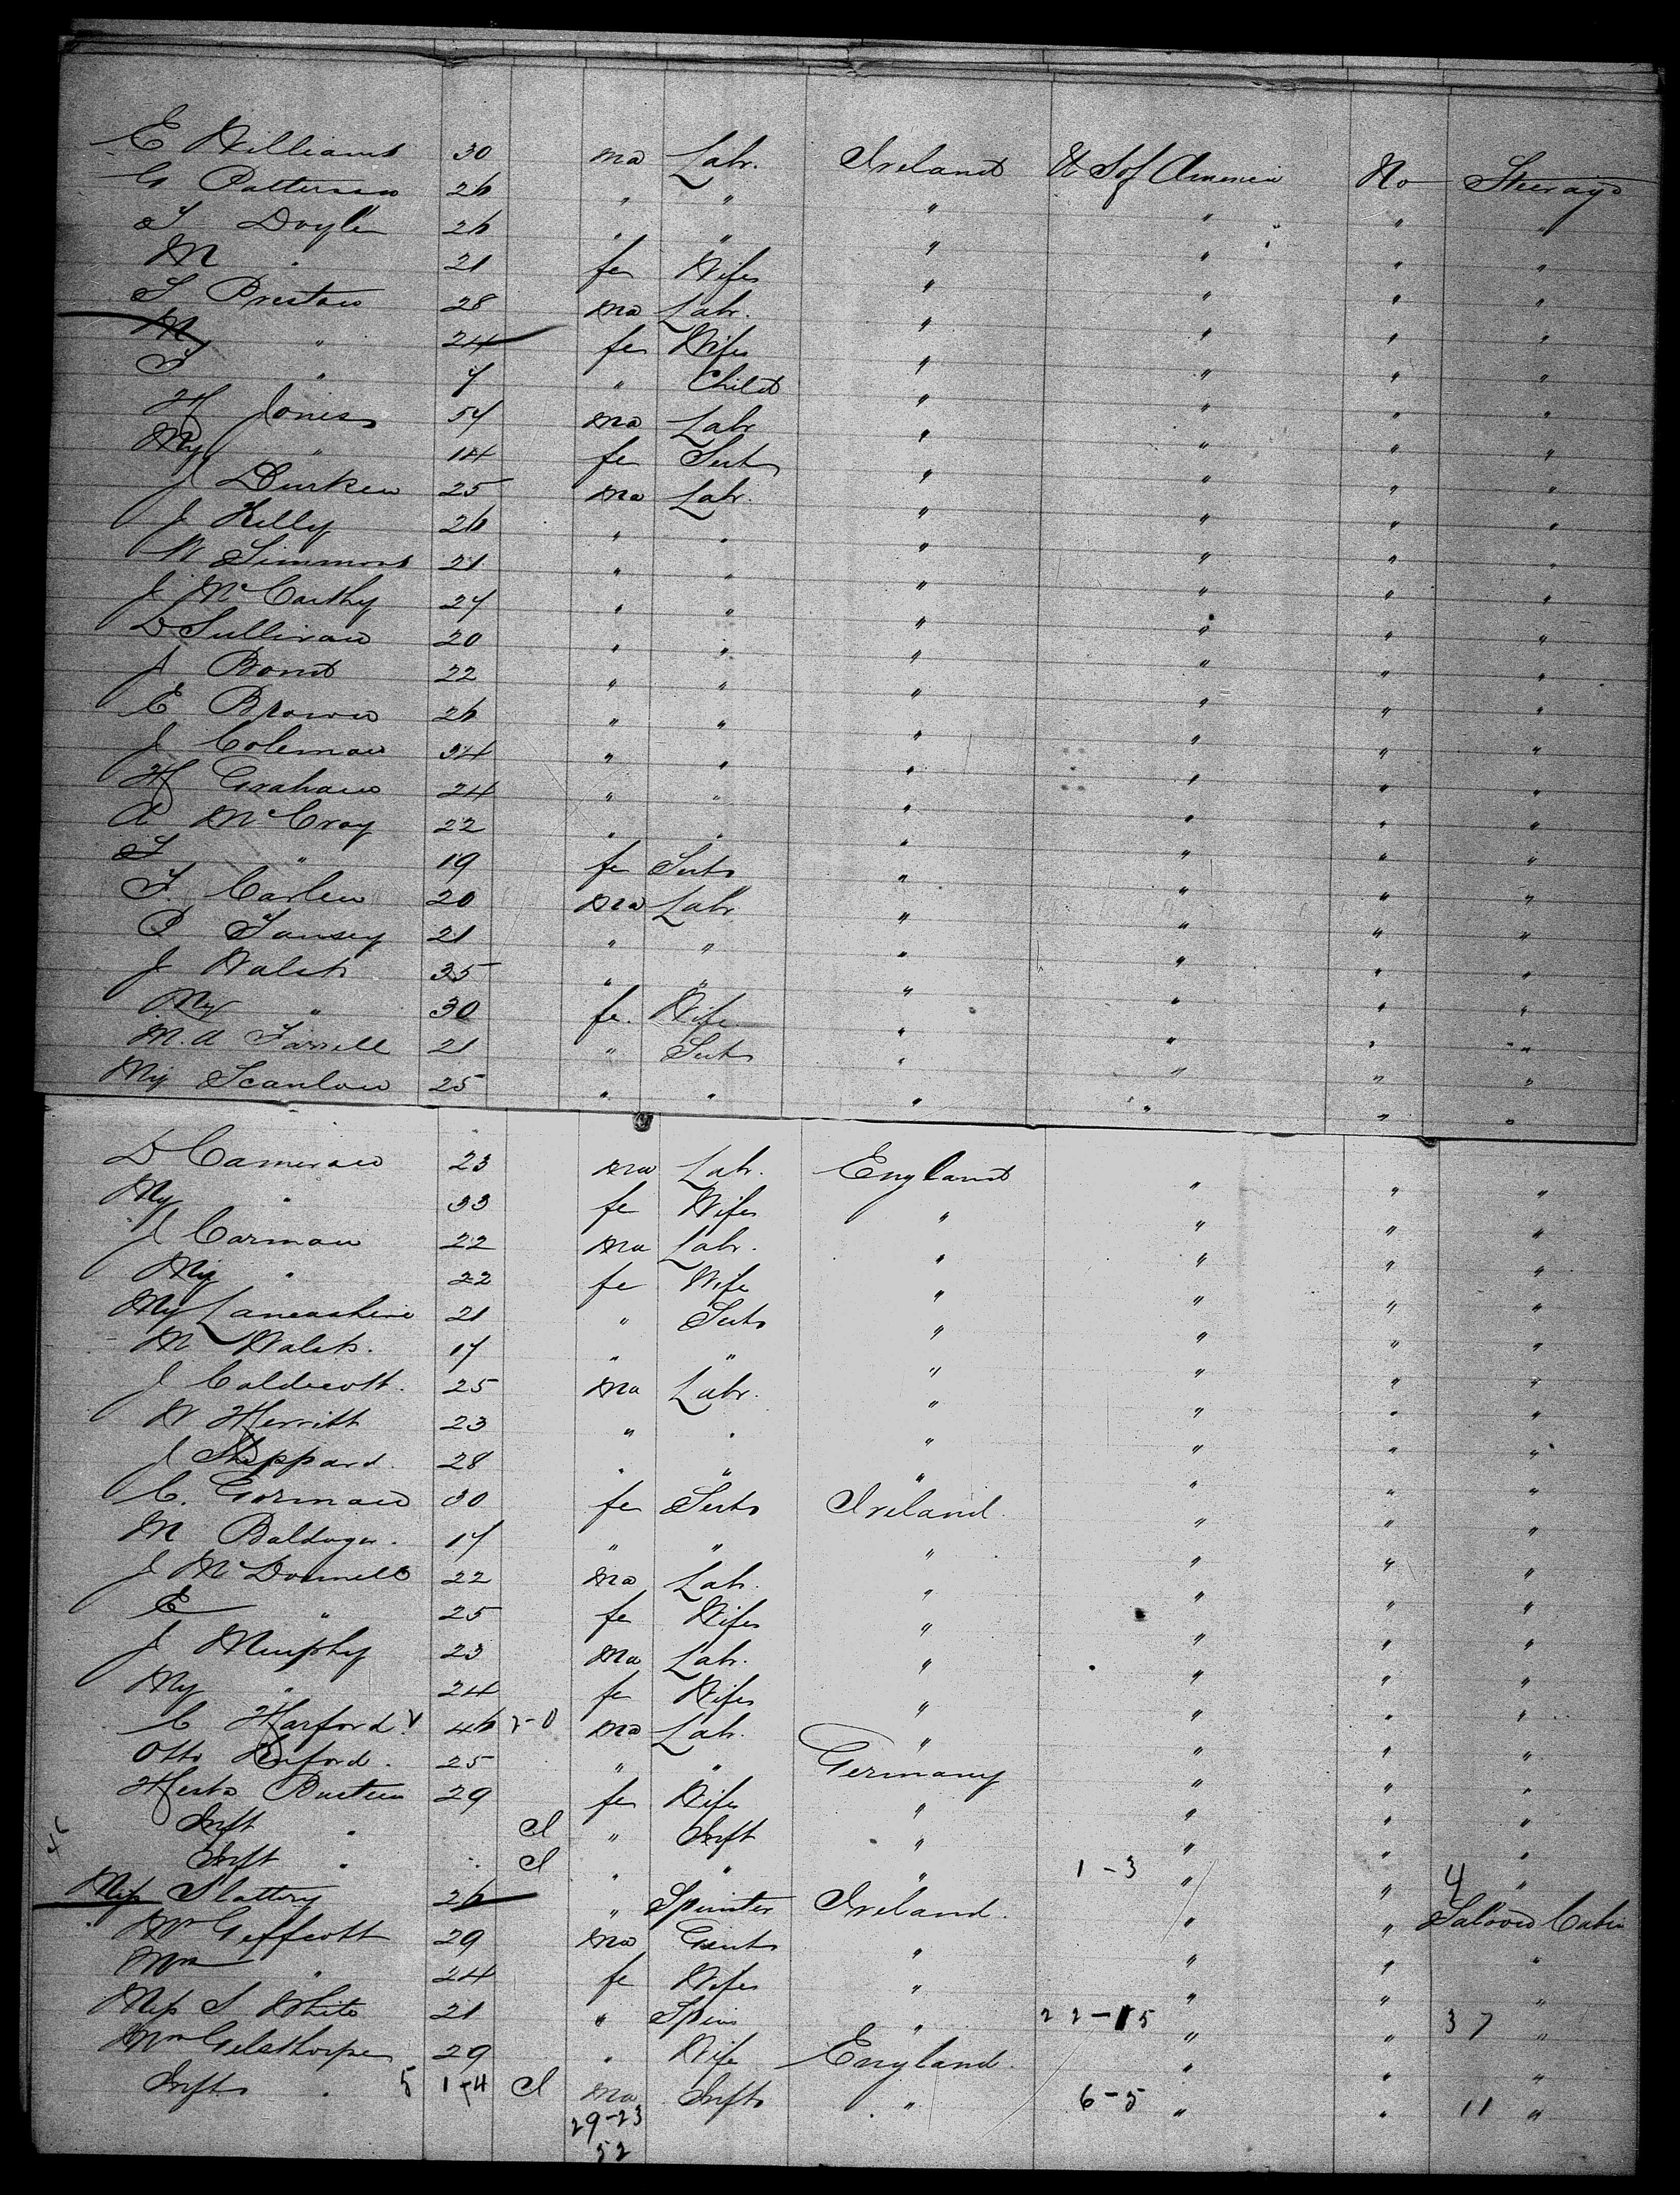 E Williams 30 ma Labr. Ireland U S of America No Steerage
G Patterson 26 " " " " " "
T Doyle 26 " " " " " "
M " 21 fe Wife " " " "
S Preston 28 ma Labr. " " " "
M " 24 fe Wife " " " "
" 7 " Child " " " "
H Jones 54 ma Labr " " " "
My " 14 fe Servt " " " "
J Durken 25 ma Labr. " " " "
J Kelly 26 " " " " " "
W Simmons 21 " " " " " "
J McCarthy 27 " " " " " "
D Sullivan 20 " " " " " "
J Bond 22 " " " " " "
E Brown 26 " " " " " "
J Coleman 34 " " " " " "
H Graham 24 " " " " " "
A McCray 22 " " " " " "
S " 19 fe Servt " " " "
T. Carlen 20 ma Labr " " " "
P Tansey 21 " " " " " "
J Walsh 35 " " " " " "
My " 30 fe. Wife " " " "
M.A Farrell 21 " Servt " " " "
My Scanlon 25 " " " " " "
D Cameron 23 ma Labr. England " " "
My " 33 fe Wife " " " "
J Carman 22 ma Labr. " " " "
My " 22 fe Wife " " " "
My Lancashire 21 " Servt " " " "
M Walsh. 17 " " " " " "
J Caldecott. 25 ma Labr. " " " "
W Merritt 23 " " " " " "
J Sheppard. 28 " " " " " "
C. Gorman 30 fe Servt Ireland. " " "
M 17 " " " " " "
J McDonnell 22 ma Labr. " " " "
E " 25 fe Wife " " " "
J Murphy 23 ma Labr. " " " "
My " 24 fe Wife " " " "
C Harford. 46 ma Labr. " " " "
Otto 25 " " Germany " " "
29 fe Wife " " " "
Inft " " Inft " " " "
Inft " " " " 1-3 " " 4 "
Miss Slattery 26 " Spinster Ireland. " " Saloon Cabin
Mr Geffcott 29 ma Gent " " " "
Mrs " 24 fe Wife " " " "
Miss S White 21 " Spin " 22-15 " " 37 "
Mrs Gelsthorpe 29 " Wife England. " " "
Inft " 5 1-4 ma Inft " 6-5 " " 11 "
29-23
52